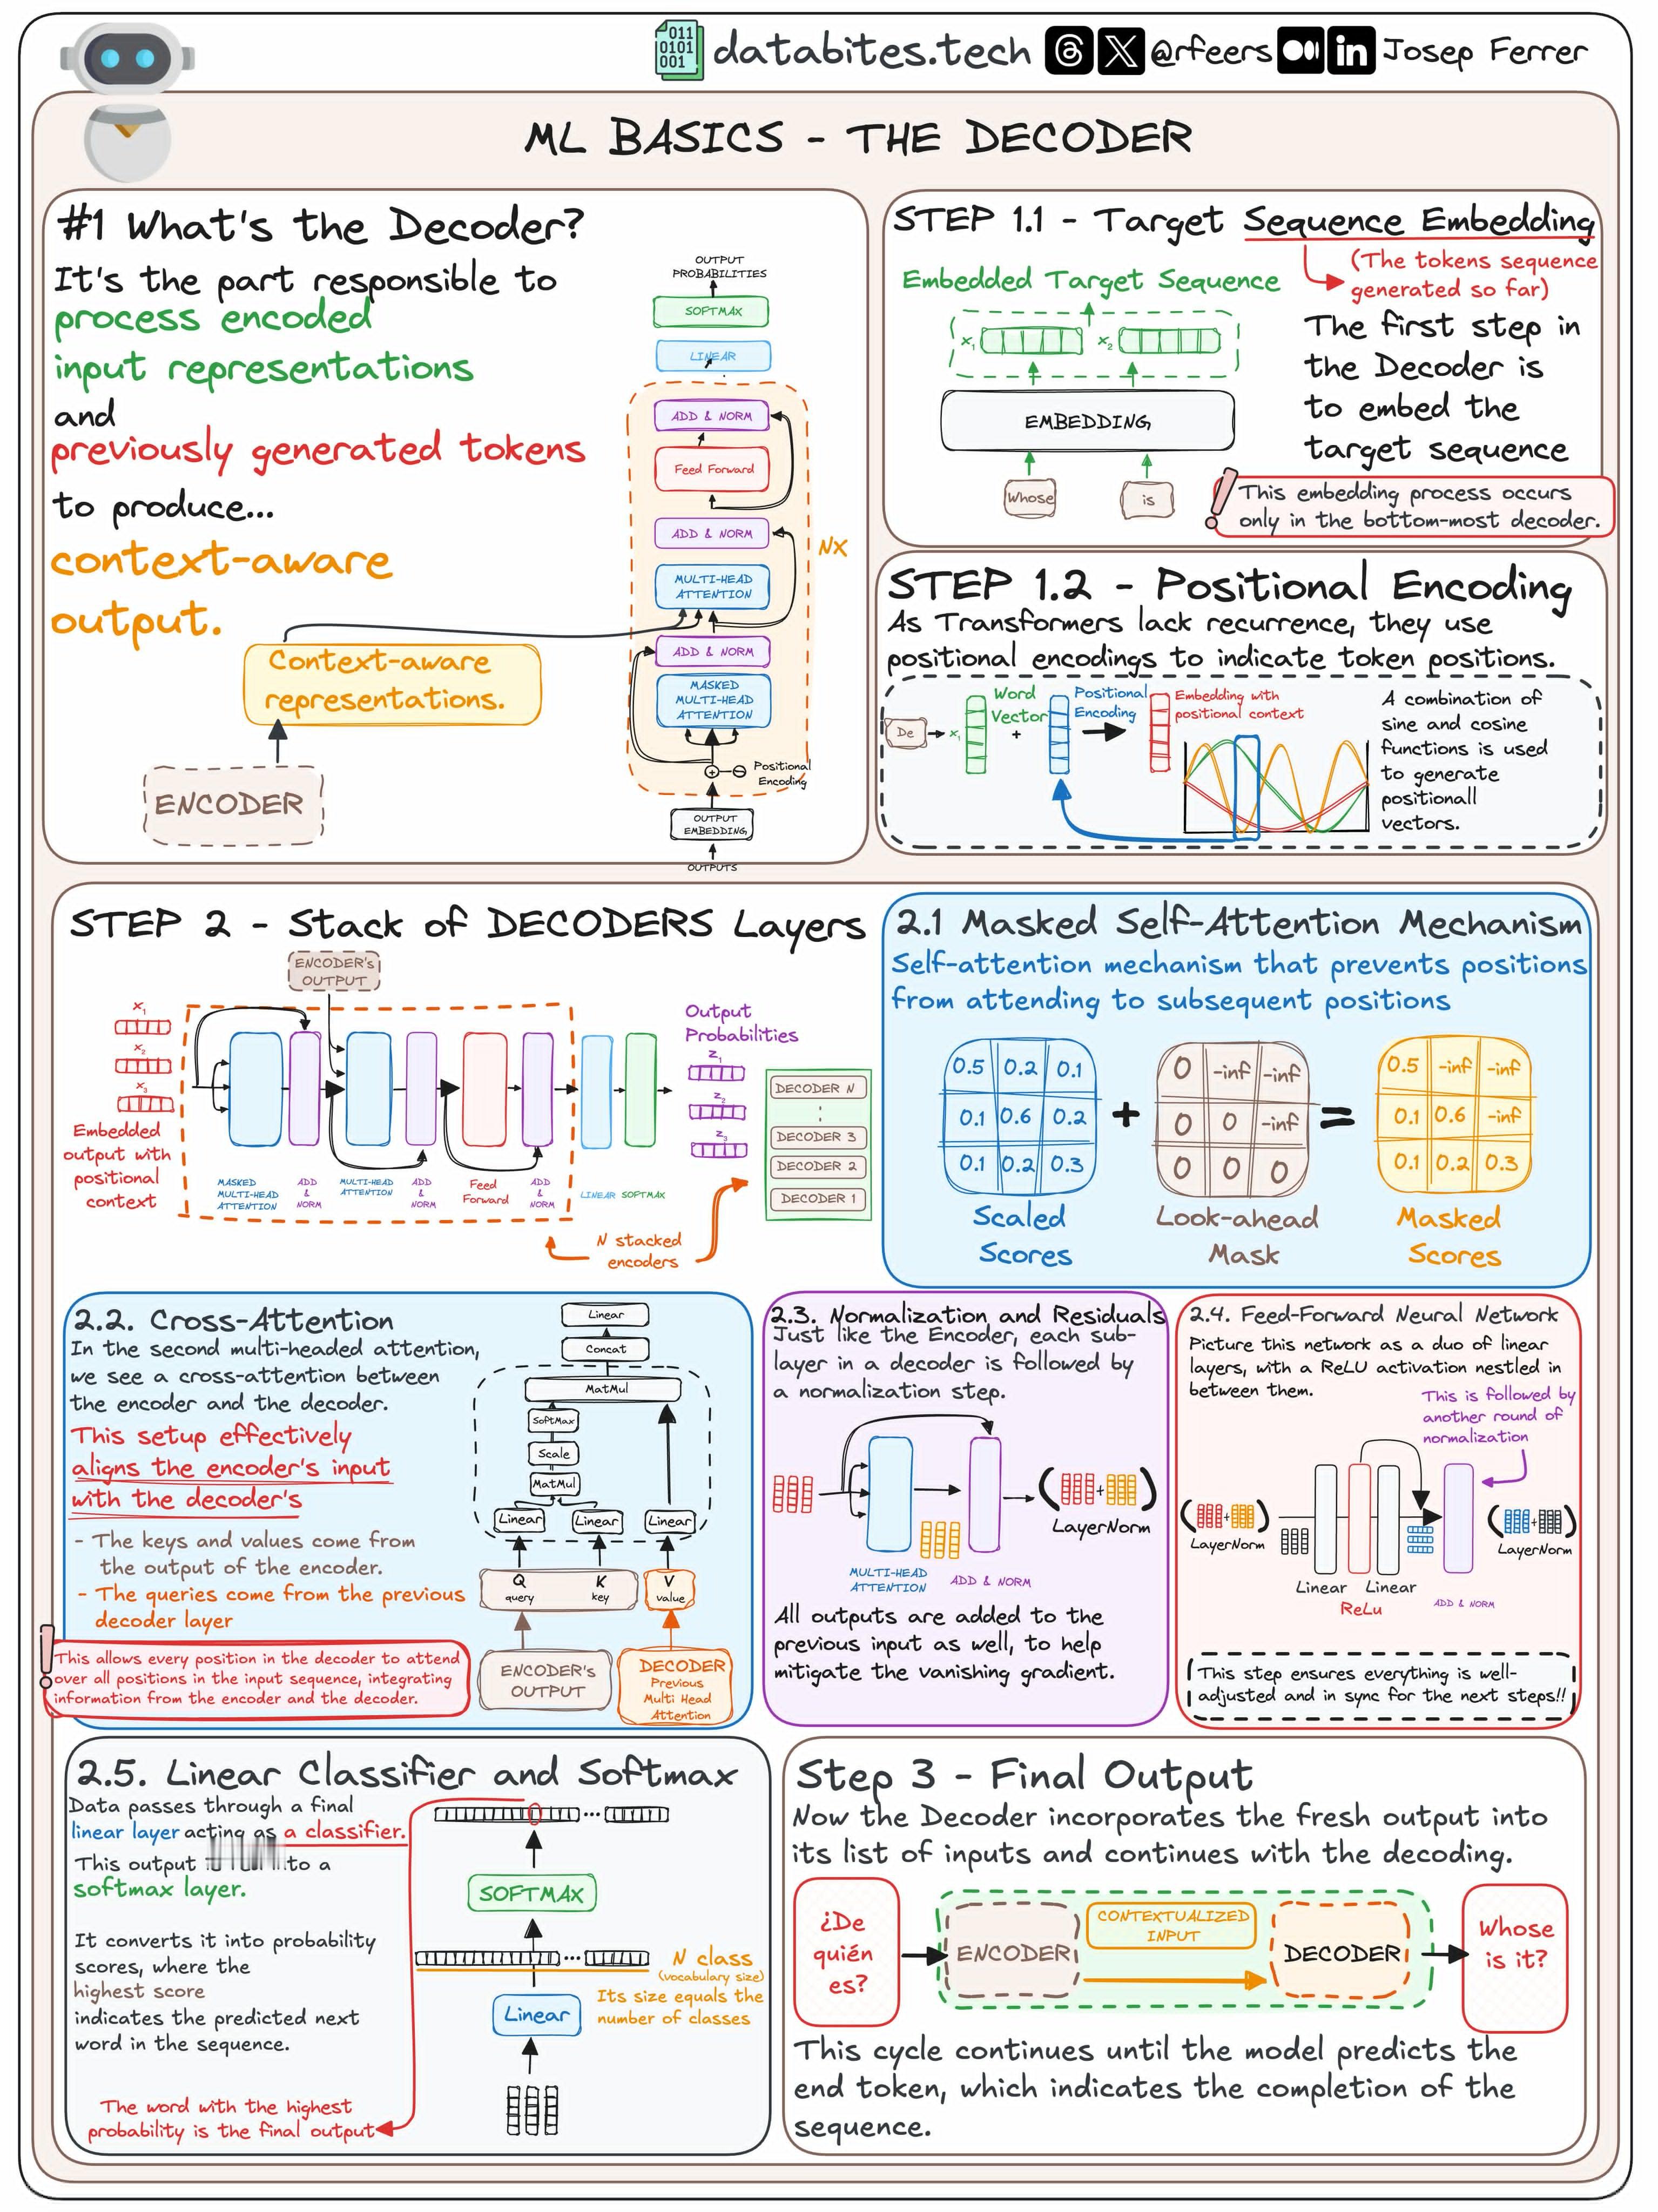 011
0101
001
databites.tech
@rfeers
in
Josep Ferrer
ML BASICS - THE DECODER
#1 What's the Decoder?
It's the part responsible to
process encoded
input representations
and
previously generated tokens
to produce...
context-aware
output.
Context-aware
representations.
ENCODER
OUTPUT
PROBABILITIES
SOFTMAX
LINEAR
ADD & NORM
Feed Forward
ADD & NORM
NX
MULTI-HEAD
ATTENTION
ADD & NORM
MASKED
MULTI-HEAD
ATTENTION
Positional
Encoding
OUTPUT
EMBEDDING
OUTPUTS
STEP 1.1 - Target Sequence Embedding
(The tokens sequence
generated so far)
Embedded Target Sequence
x1
x2
EMBEDDING
Whose
is
The first step in
the Decoder is
to embed the
target sequence
This embedding process occurs
only in the bottom-most decoder.
STEP 1.2 - Positional Encoding
As Transformers lack recurrence, they use
positional encodings to indicate token positions.
De
x1
Word
Vector
+
Positional
Encoding
Embedding with
positional context
A combination of
sine and cosine
functions is used
to generate
positionall
vectors.
STEP 2 - Stack of DECODERS Layers
ENCODER's
OUTPUT
x1
x2
x3
Embedded
output with
positional
context
MASKED
MULTI-HEAD
ATTENTION
ADD
&
NORM
MULTI-HEAD
ATTENTION
ADD
&
NORM
Feed
Forward
ADD
&
NORM
LINEAR
SOFTMAX
Output
Probabilities
z1
z2
z3
DECODER N
DECODER 3
DECODER 2
DECODER 1
N stacked
encoders
2.1 Masked Self-Attention Mechanism
Self-attention mechanism that prevents positions
from attending to subsequent positions
0.5 0.2 0.1
0.1 0.6 0.2
0.1 0.2 0.3
+
0 -inf -inf
0 0 -inf
0 0 0
=
0.5 -inf -inf
0.1 0.6 -inf
0.1 0.2 0.3
Scaled
Scores
Look-ahead
Mask
Masked
Scores
2.2. Cross-Attention
In the second multi-headed attention,
we see a cross-attention between
the encoder and the decoder.
This setup effectively
aligns the encoder's input
with the decoder's
- The keys and values come from
the output of the encoder.
- The queries come from the previous
decoder layer
This allows every position in the decoder to attend
over all positions in the input sequence, integrating
information from the encoder and the decoder.
Linear
Concat
MatMul
SoftMax
Scale
MatMul
Linear
Linear
Linear
Q
query
K
key
V
value
ENCODER's
OUTPUT
DECODER
Previous
Multi Head
Attention
2.3. Normalization and Residuals
Just like the Encoder, each sub-
layer in a decoder is followed by
a normalization step.
MULTI-HEAD
ATTENTION
ADD & NORM
( + )
LayerNorm
All outputs are added to the
previous input as well, to help
mitigate the vanishing gradient.
2.4. Feed-Forward Neural Network
Picture this network as a duo of linear
layers, with a ReLU activation nestled in
between them.
This is followed by
another round of
normalization
( + )
LayerNorm
Linear
Linear
ReLu
ADD & NORM
( + )
LayerNorm
This step ensures everything is well-
adjusted and in sync for the next steps!!
2.5. Linear Classifier and Softmax
Data passes through a final
linear layer acting as a classifier.
This output to a
softmax layer.
It converts it into probability
scores, where the
highest score
indicates the predicted next
word in the sequence.
The word with the highest
probability is the final output
...
SOFTMAX
...
N class
(vocabulary size)
Its size equals the
number of classes
Linear
Step 3 - Final Output
Now the Decoder incorporates the fresh output into
its list of inputs and continues with the decoding.
¿De
quién
es?
ENCODER
CONTEXTUALIZED
INPUT
DECODER
Whose
is it?
This cycle continues until the model predicts the
end token, which indicates the completion of the
sequence.